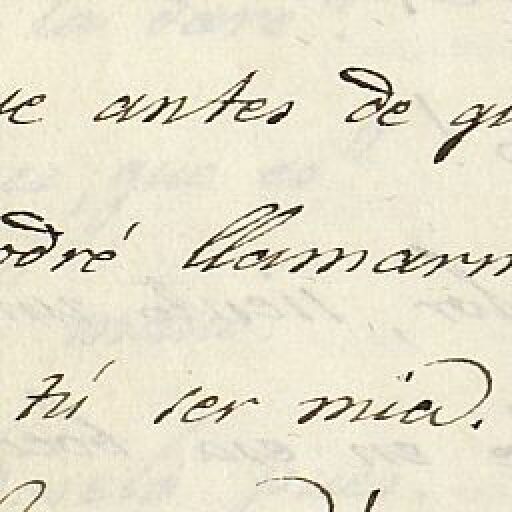 ue antes de qu
odré llamarm
tú ser mia.